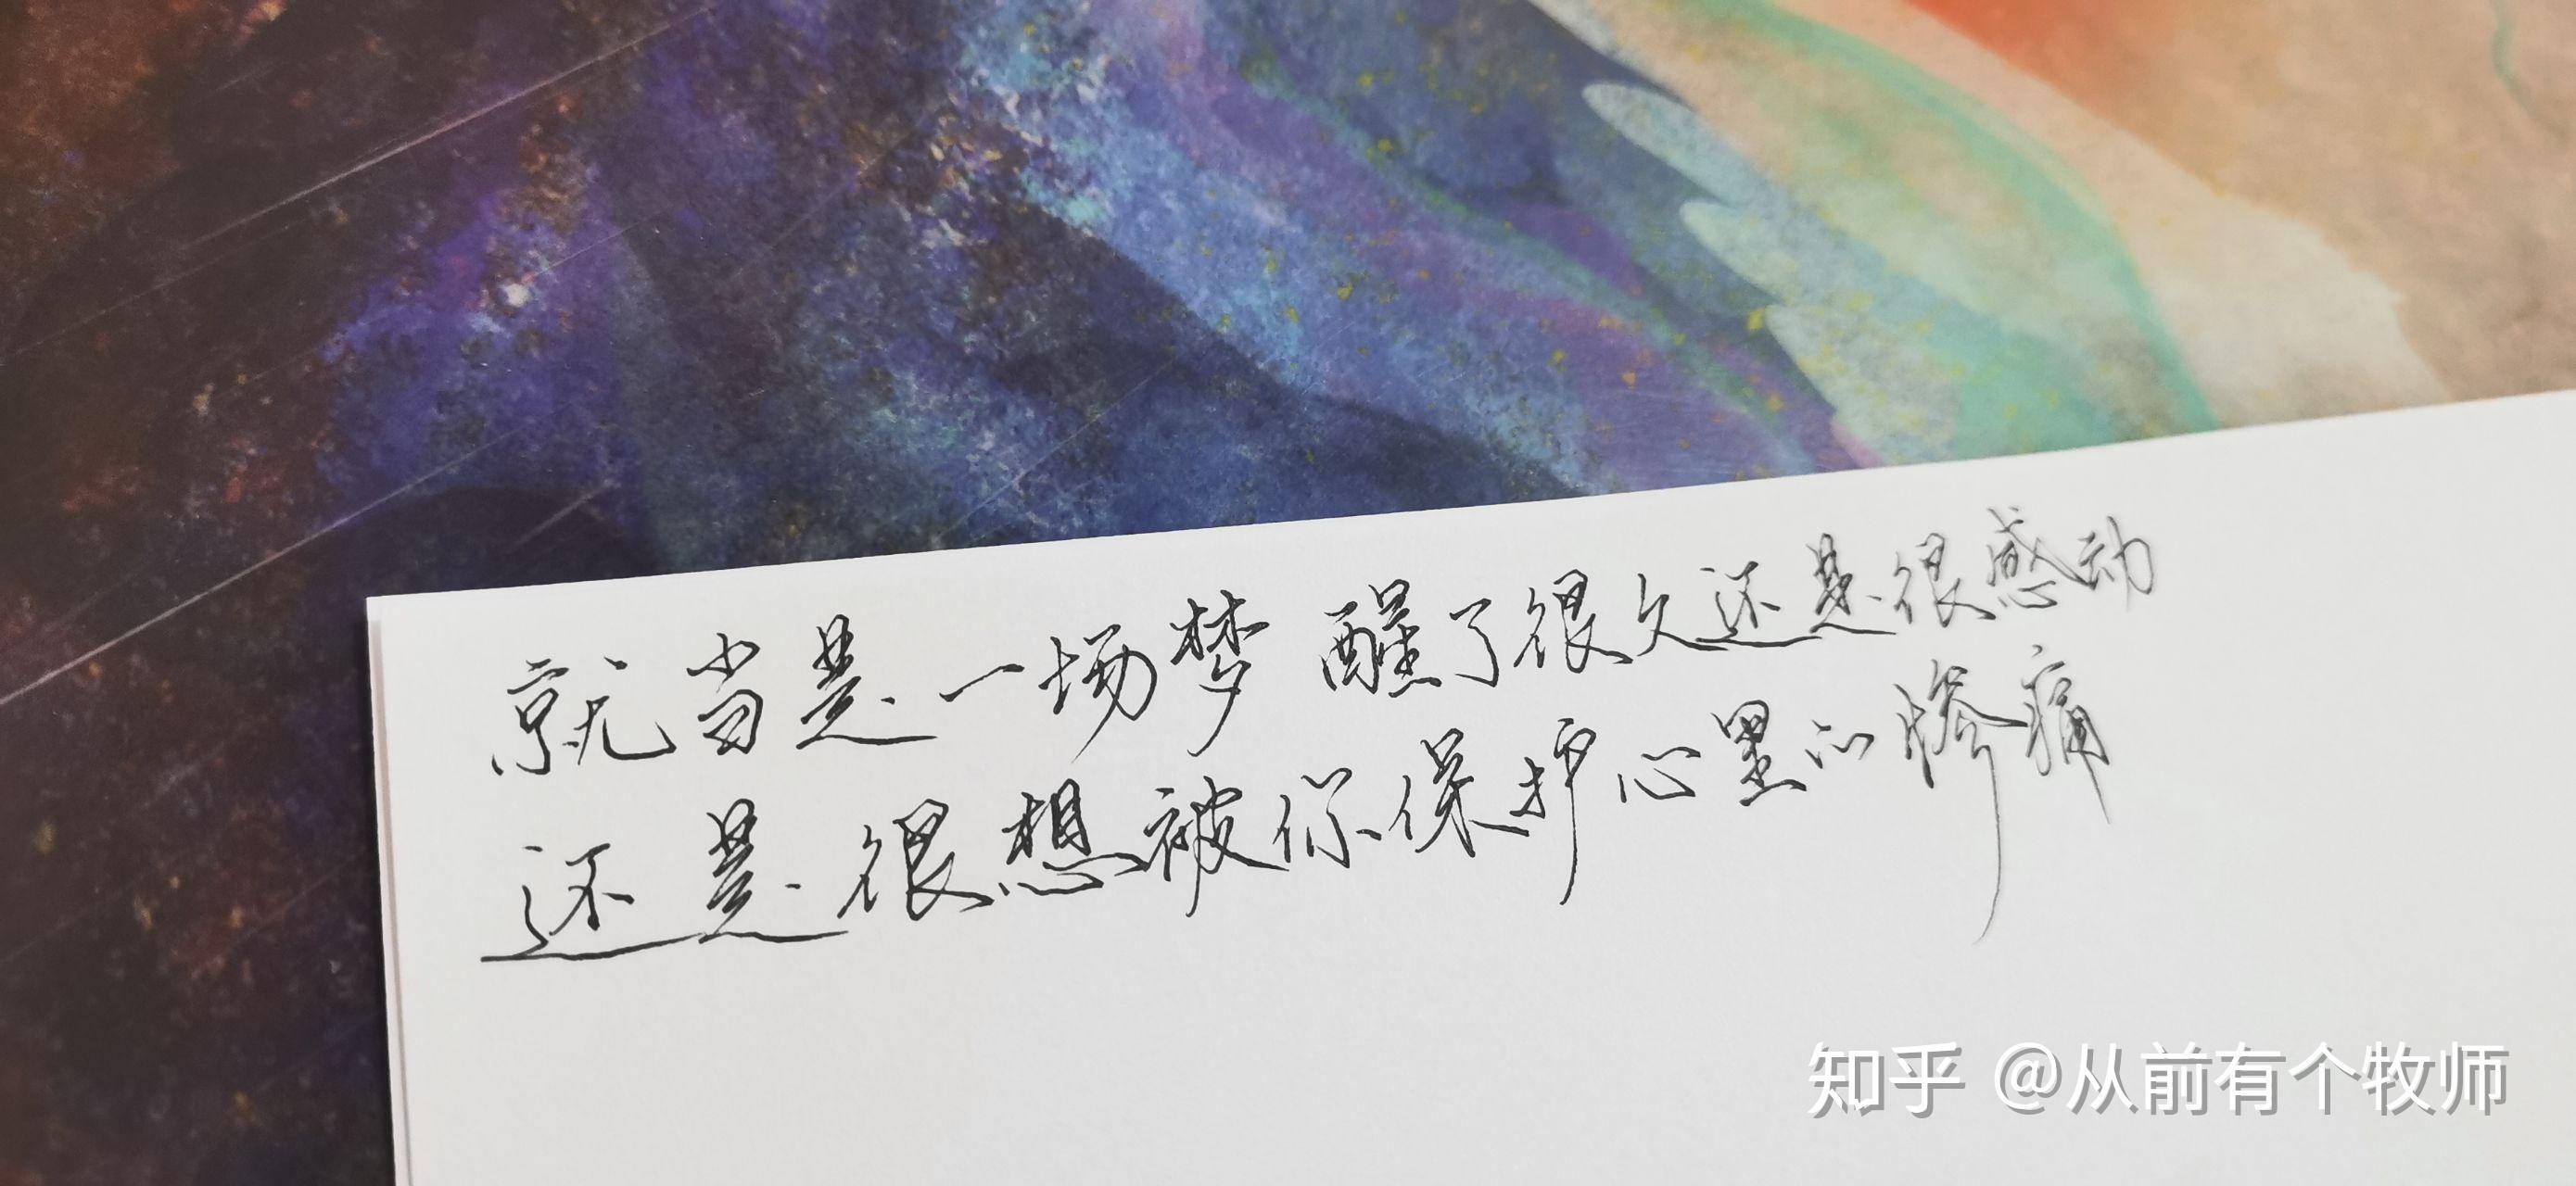 就当是一场梦 醒了很久还是很感动
还是很想被你保护心里的惨痛
知乎 @从前有个牧师